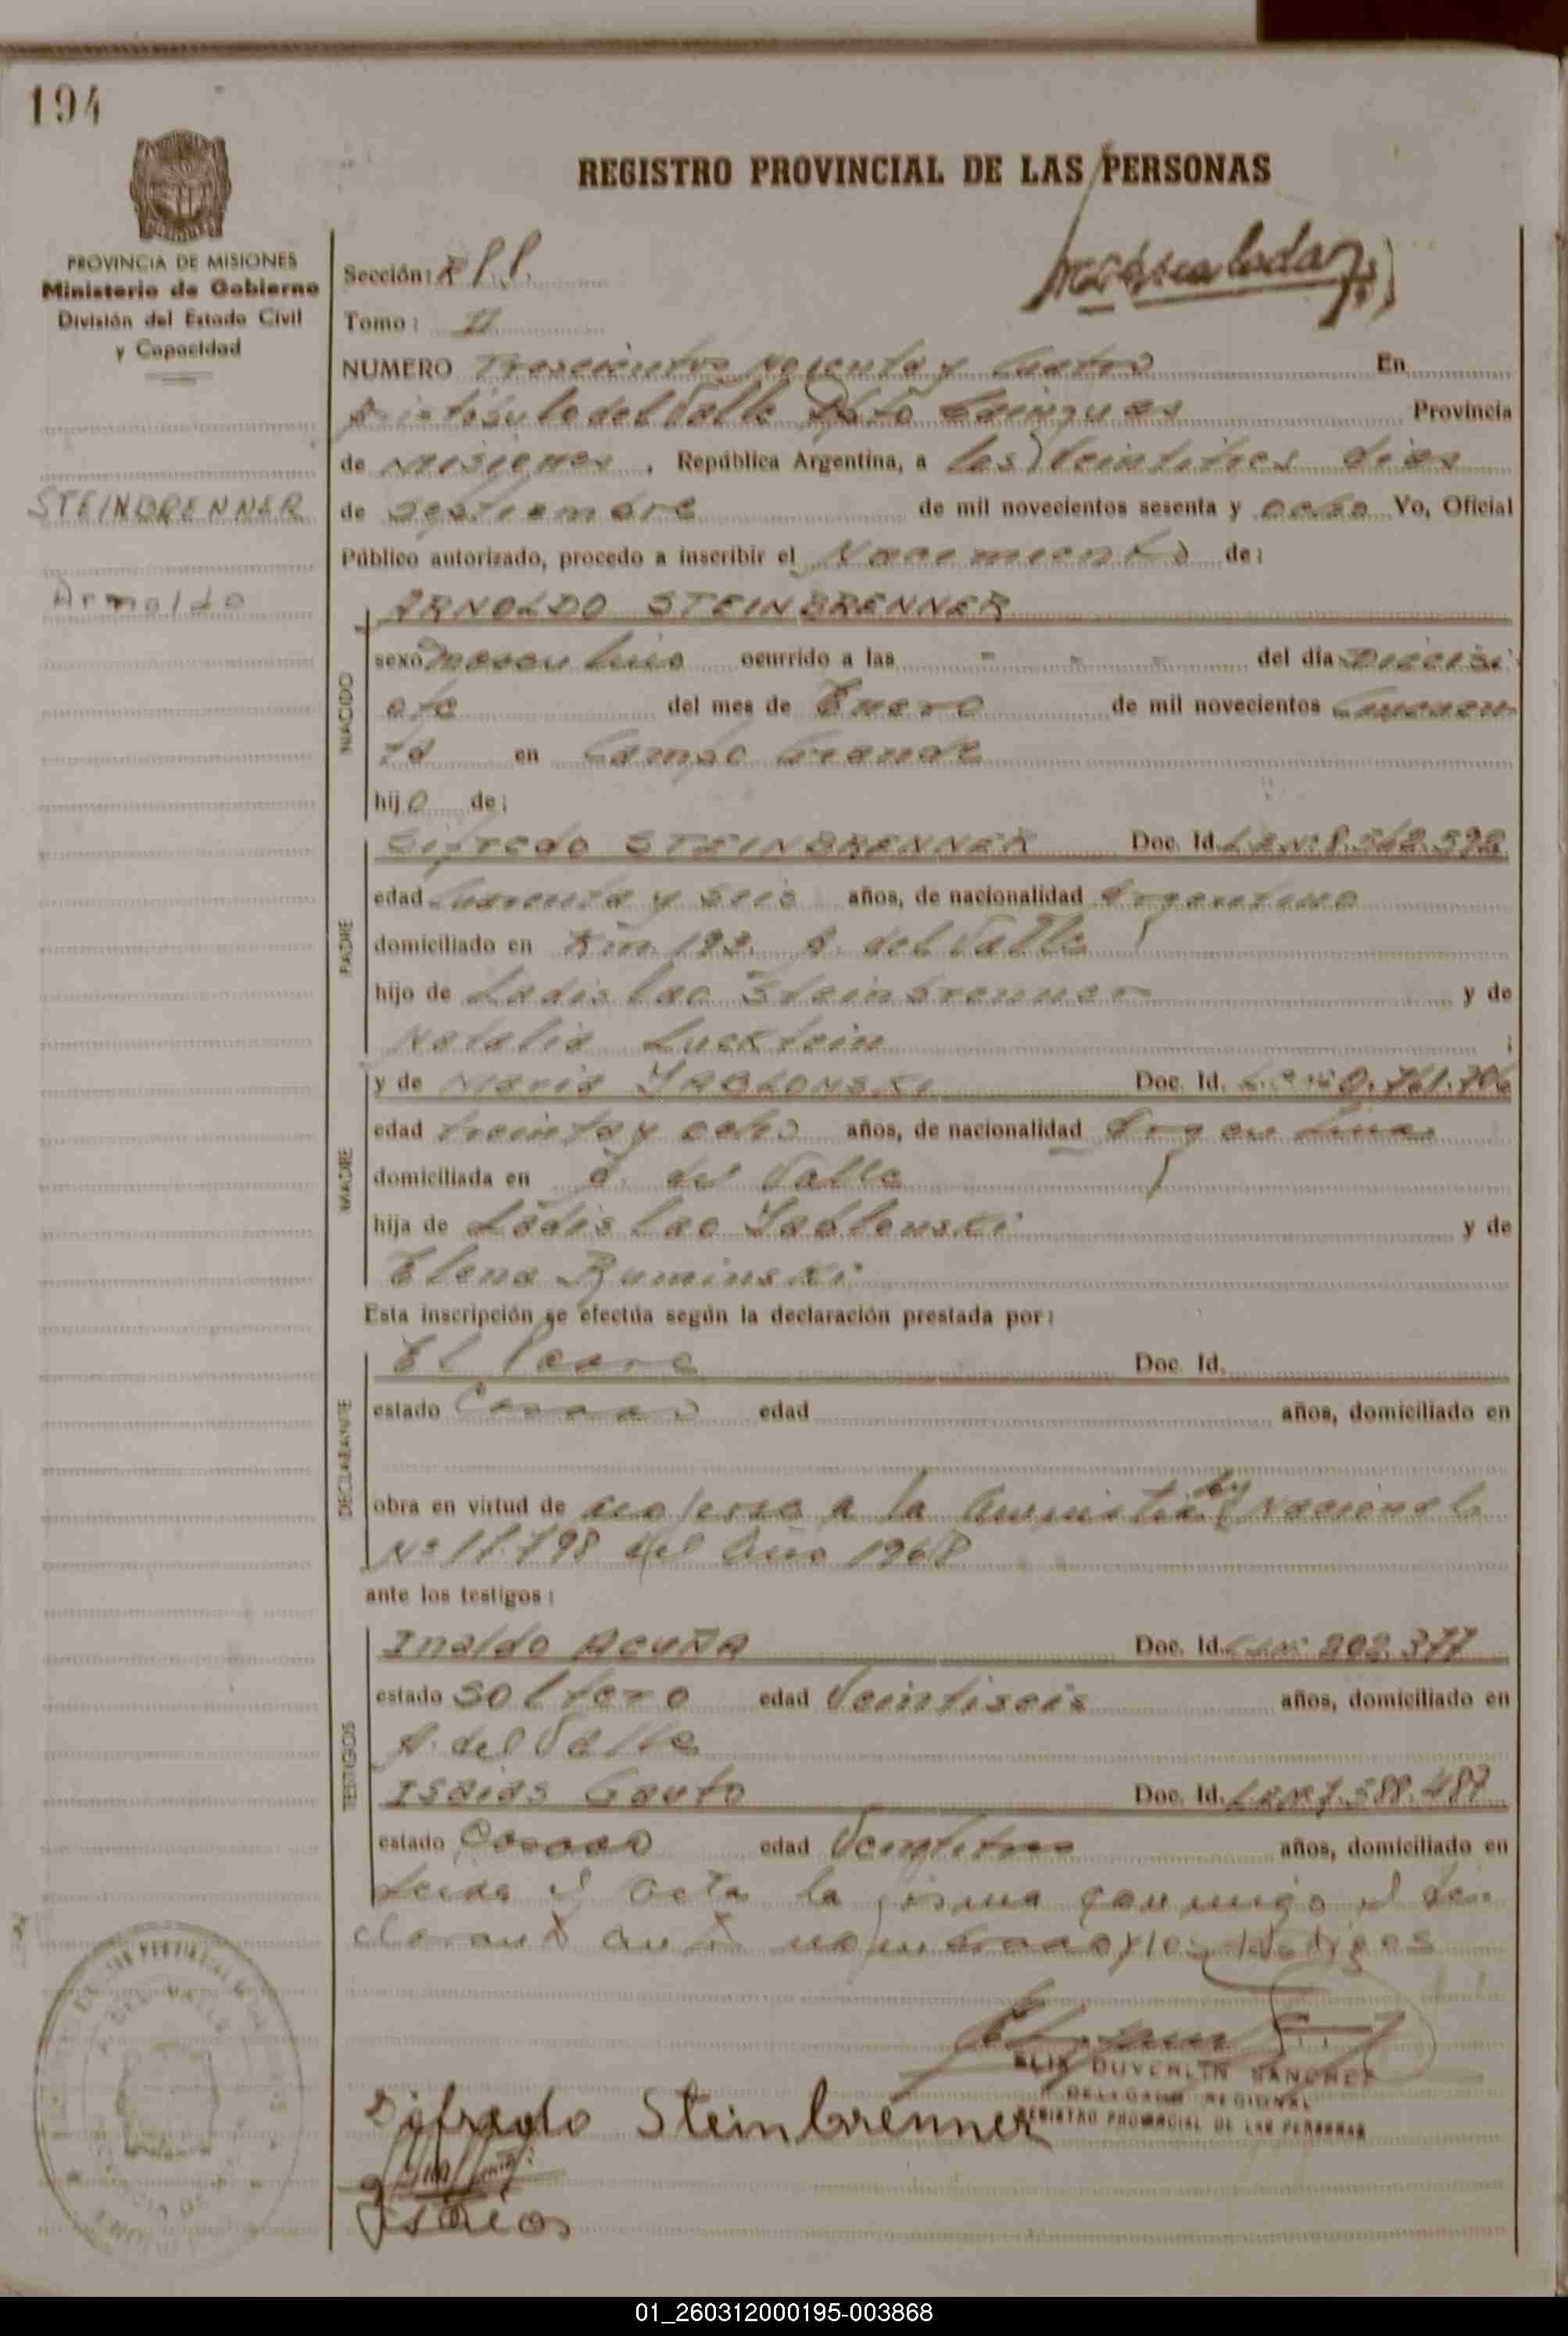 194
REGISTRO PROVINCIAL DE LAS PERSONAS
PROVINCIA DE MISIONES
Ministerio de Gobierno
División del Estado Civil
y Capacidad
Sección:
Tomo: II
NUMERO Trescientos Noventa y Cuatro En
Aristóbulo del Valle Dpto Cainguas Provincia
de Misiones, República Argentina, a los Veintitres dias
STEINBRENNER
de Septiembre de mil novecientos sesenta y ocho Yo, Oficial
Público autorizado, procedo a inscribir el Nacimiento de:
Arnoldo
ARNOLDO STEINBRENNER
NACIDO
sexo masculino ocurrido a las - - - del dia Diecisi
ete del mes de Enero de mil novecientos Cincuen
ta en Campo Grande
hijo de:
PADRE
Sifredo STEINBRENNER Doc. Id. L.E.Nº 8.562.592
edad Cuarenta y Seis años, de nacionalidad Argentino
domiciliado en Km. 192. A. del Valle
hijo de Ladislao Steinbrenner y de
Natalia Lucktein
MADRE
y de Maria JABLONSKI Doc. Id.
edad treinta y ocho años, de nacionalidad Argentina
domiciliada en A. del Valle
hija de Ladislao Jablonski y de
Elena Ruminski
Esta inscripción se efectúa según la declaración prestada por:
DECLARANTE
El Padre Doc. Id.
estado Casado edad años, domiciliado en
obra en virtud de acojerse a la Amnistia Ley Nacional
Nº 17.798 del Año 1968
ante los testigos:
TESTIGOS
Inaldo ACUÑA Doc. Id. 202.377
estado Soltero edad Veintiseis años, domiciliado en
A. del Valle
Isaias Gauto Doc. Id. L.E.Nº 7.588.487
estado Casado edad Veintitres años, domiciliado en
Leida el Acta la firma conmigo el de-
clarante ante nombrado y los testigos
DUVERLIN SANCHEZ
DELEGADO REGIONAL
REGISTRO PROVINCIAL DE LAS PERSONAS
Sifredo Steinbrenner
Isaias
01_260312000195-003868